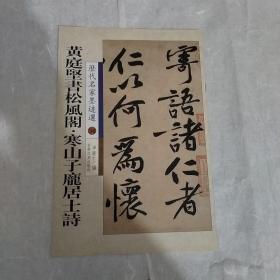 黄庭堅書松風閣·寒山子龐居士詩
歷代名家墨迹選
寄語諸仁者
仁以何爲懷